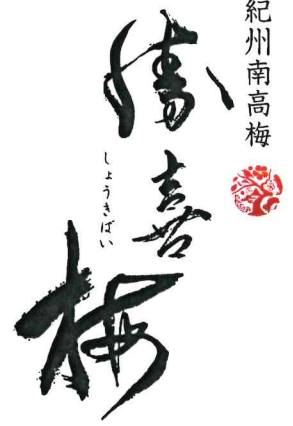 紀州南高梅
勝喜梅
しょうきばい